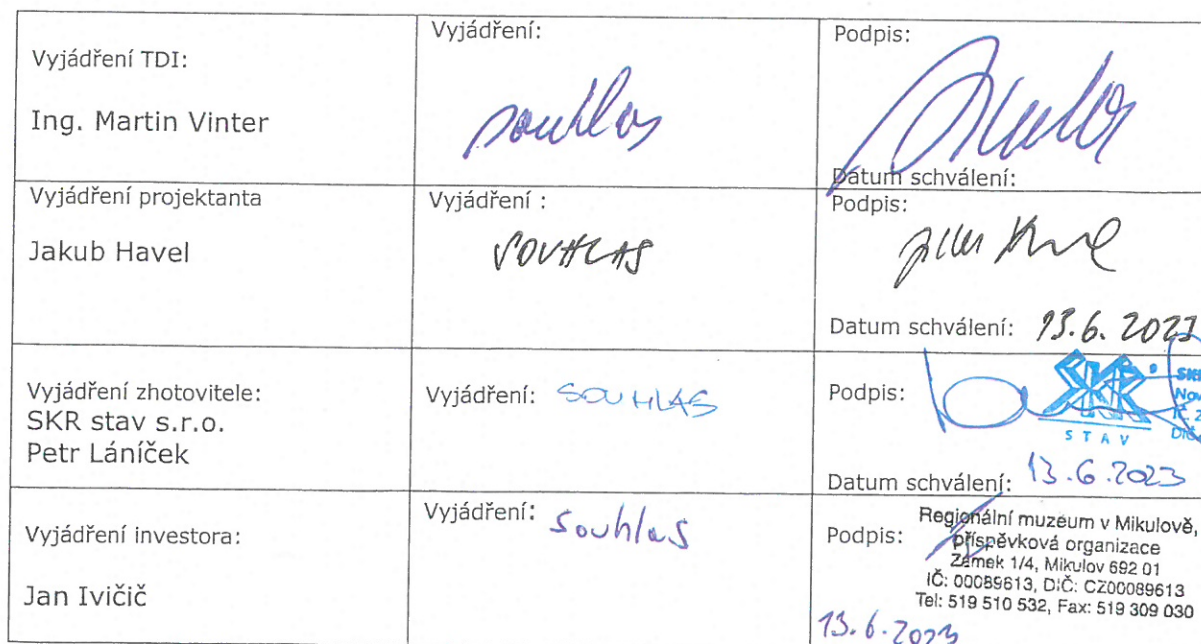 Vyjádření TDI:
Ing. Martin Vinter
Vyjádření:
souhlas
Podpis:
Datum schválení:
Vyjádření projektanta
Jakub Havel
Vyjádření :
SOUHLAS
Podpis:
Datum schválení: 13.6.2023
Vyjádření zhotovitele:
SKR stav s.r.o.
Petr Láníček
Vyjádření: SOUHLAS
Podpis:
SKR
STAV
Datum schválení: 13.6.2023
Vyjádření investora:
Jan Ivičič
Vyjádření: souhlas
Podpis:
Regionální muzeum v Mikulově,
příspěvková organizace
Zámek 1/4, Mikulov 692 01
IČ: 00089613, DIČ: CZ00089613
Tel: 519 510 532, Fax: 519 309 030
13.6.2023